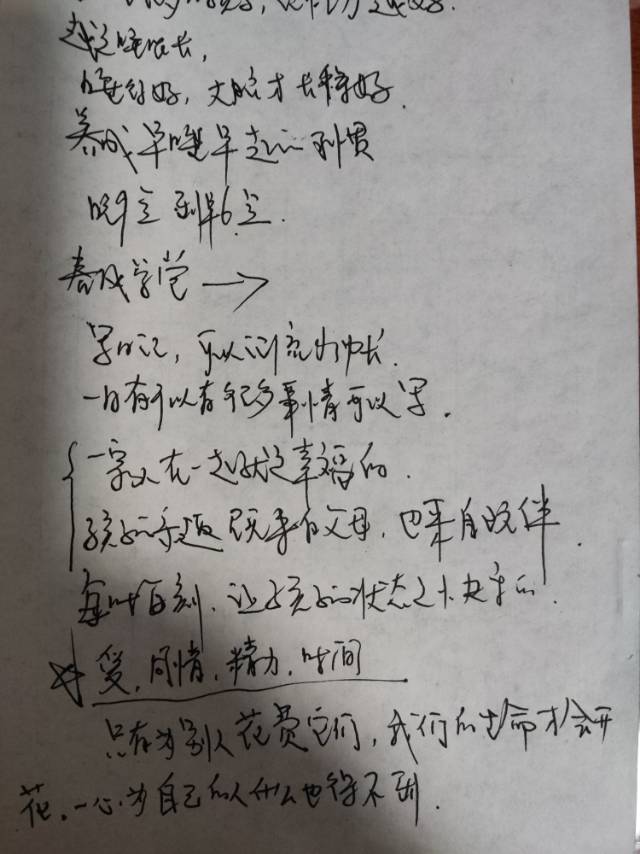 越睡呢长,
睡得好, 大脑才长得好.
养成早睡早起的习惯
晚9点到早6点.
养成学堂 →
写日记, 可以记录成长.
一日有可以有很多事情可以写.
一家人在一起就是幸福的.
孩子的乐趣 既来自父母, 也来自玩伴.
每时每刻, 让孩子的状态是快乐的.
爱, 同情, 精力, 时间
只有为别人花费它们, 我们的生命才会开
花. 一心为自己的人什么也得不到.